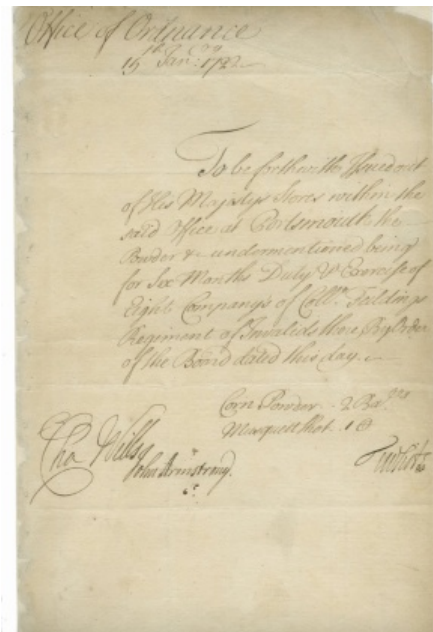 Office of Ordnance
15th Jan:ry 1722
To be forthwith Issued out
of His Majtys Stores within the
said Office at Portsmouth the
Powder & undermentioned being
for Six Months Duty & Exercise of
Eight Companys of Coll. Feildings
Regiment of Invalids there, By Order
of the Board dated this day.
Corn Powder - 2 Barrs
Musquett Shot - 1
Tho Wills
John Armstrong.